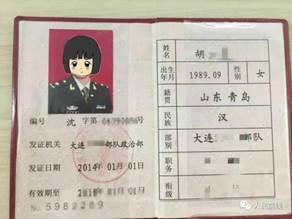 编号 沈 字第
发证机关 大连 部队政治部
发证日期 2014年01月01日
有效期至 年 月01日
№ 5982269
姓名 胡
出生年月 1989.09 性别 女
籍贯 山东青岛
民族 汉
部别 大连 部队
职务
衔级